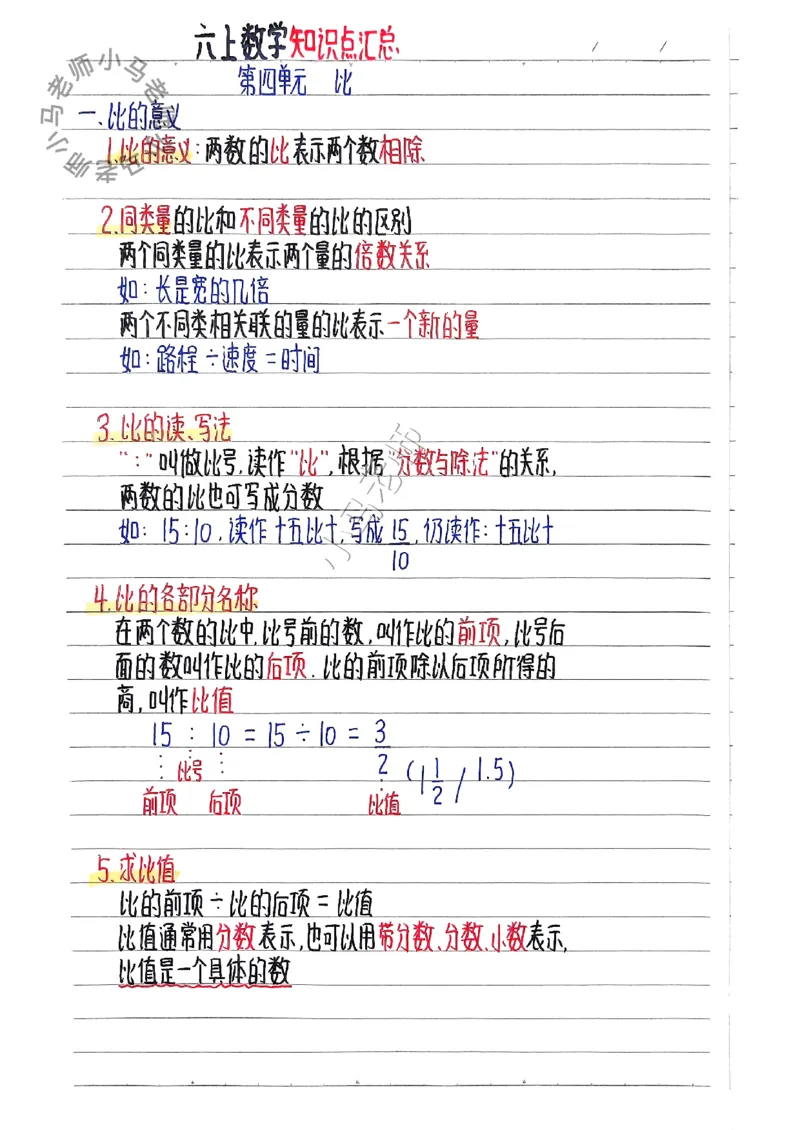 六上数学知识点汇总
第四单元 比
一、比的意义
1.比的意义:两数的比表示两个数相除
2.同类量的比和不同类量的比的区别
两个同类量的比表示两个量的倍数关系
如:长是宽的几倍
两个不同类相关联的量的比表示一个新的量
如:路程÷速度=时间
3.比的读、写法
“:”叫做比号,读作“比”,根据“分数与除法”的关系,
两数的比也可写成分数
如: 15:10,读作十五比十,写成 15/10,仍读作:十五比十
4.比的各部分名称
在两个数的比中,比号前的数,叫作比的前项,比号后
面的数叫作比的后项.比的前项除以后项所得的
商,叫作比值
15 : 10 = 15÷10 = 3/2 (1 1/2 / 1.5)
比号
前项 后项 比值
5.求比值
比的前项÷比的后项=比值
比值通常用分数表示,也可以用带分数、分数、小数表示,
比值是一个具体的数
小马老师小马老师小马老师
小马老师